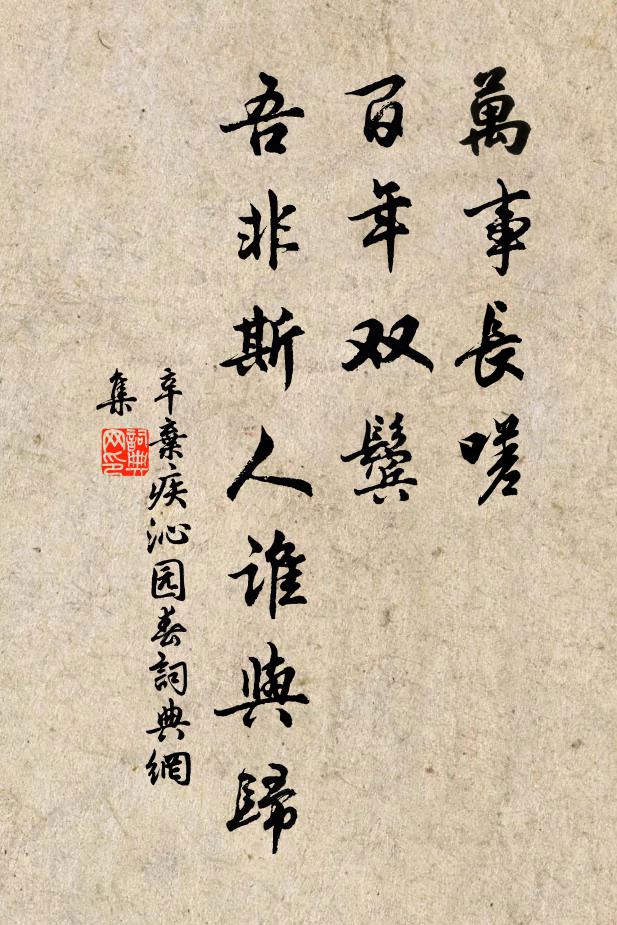 萬事長嗟
百年双鬓
吾非斯人谁與歸
辛棄疾沁园春詞典網
集
詞典
网印